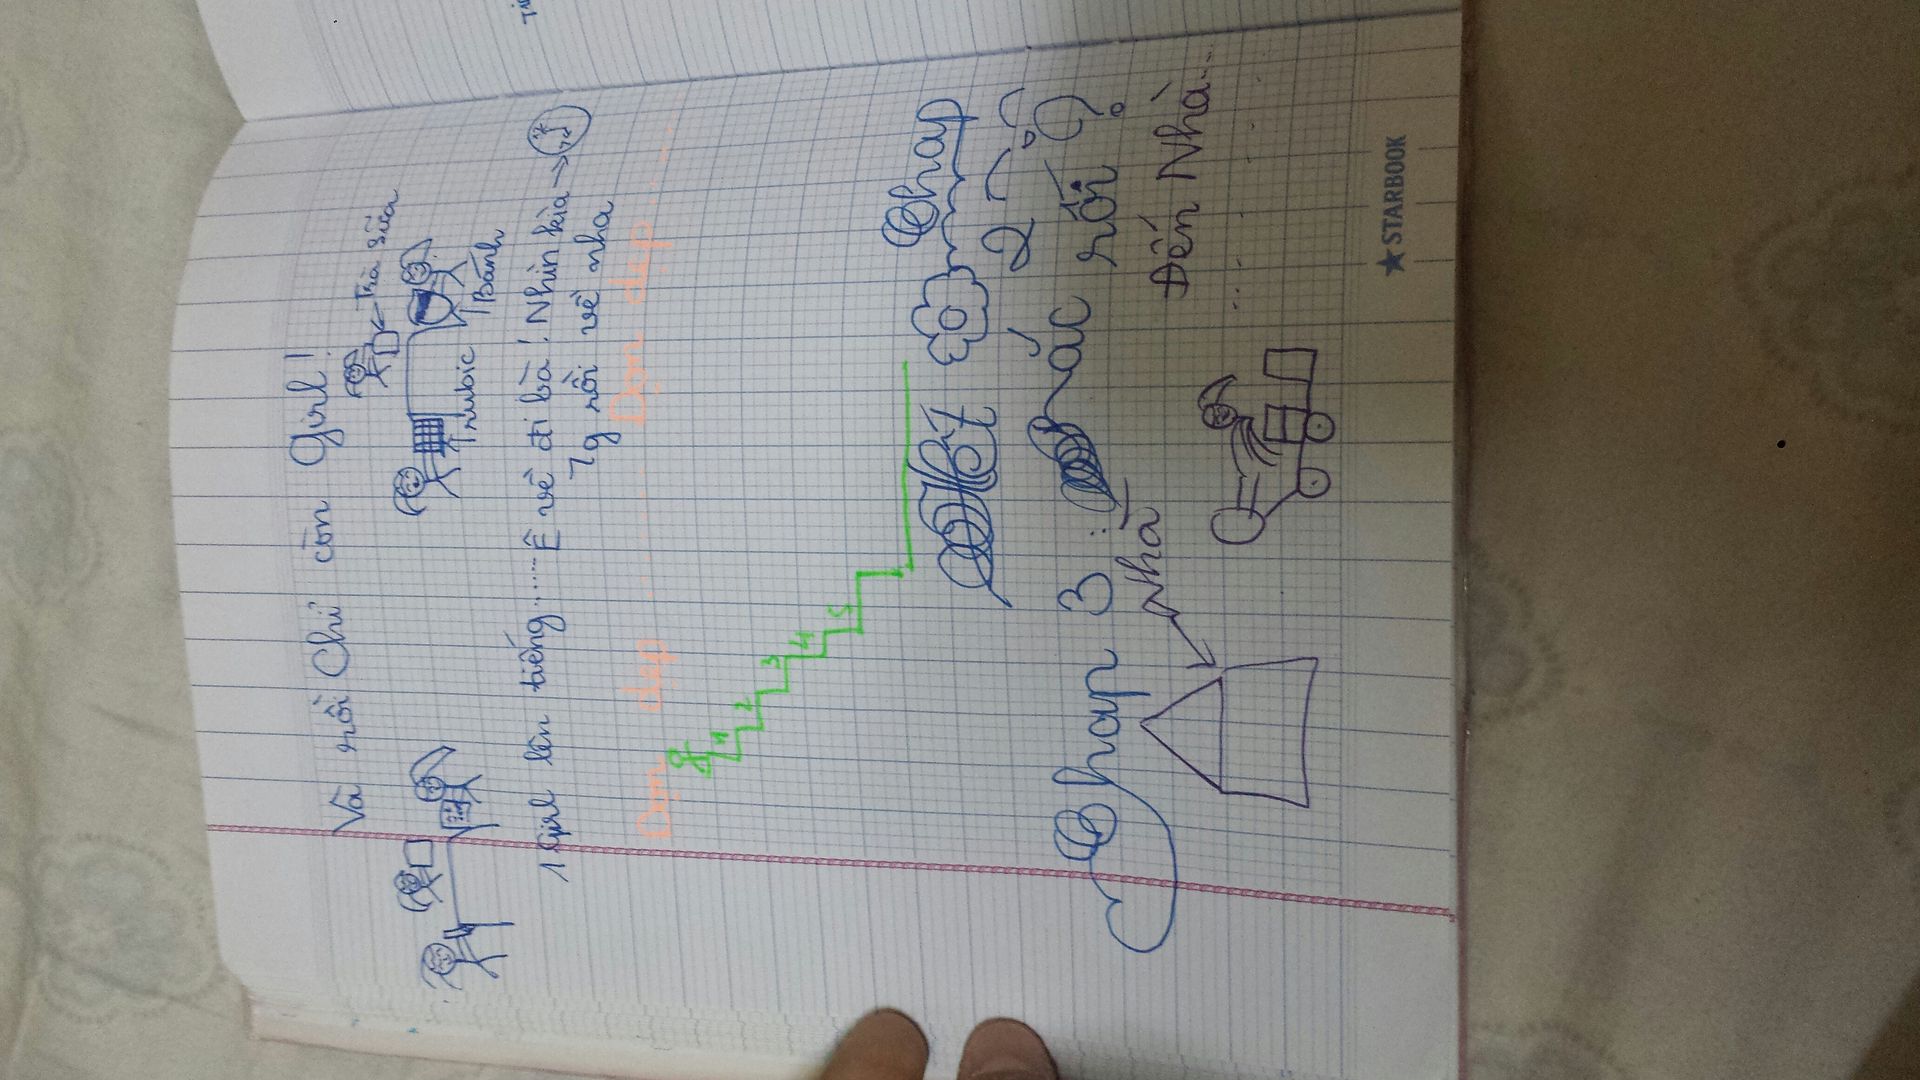 Và rồi Chỉ còn Girl!
Trà sữa
Trubic
Bánh
1 Girl lên tiếng......Ê về đi bà! Nhìn kìa →
7g rồi về nha
Dọn dẹp......Dọn dẹp......
1
2
3
4
5
Hết Chap
2
Chap 3: Rắc rối?
Nhà
Đến Nhà...
★STARBOOK